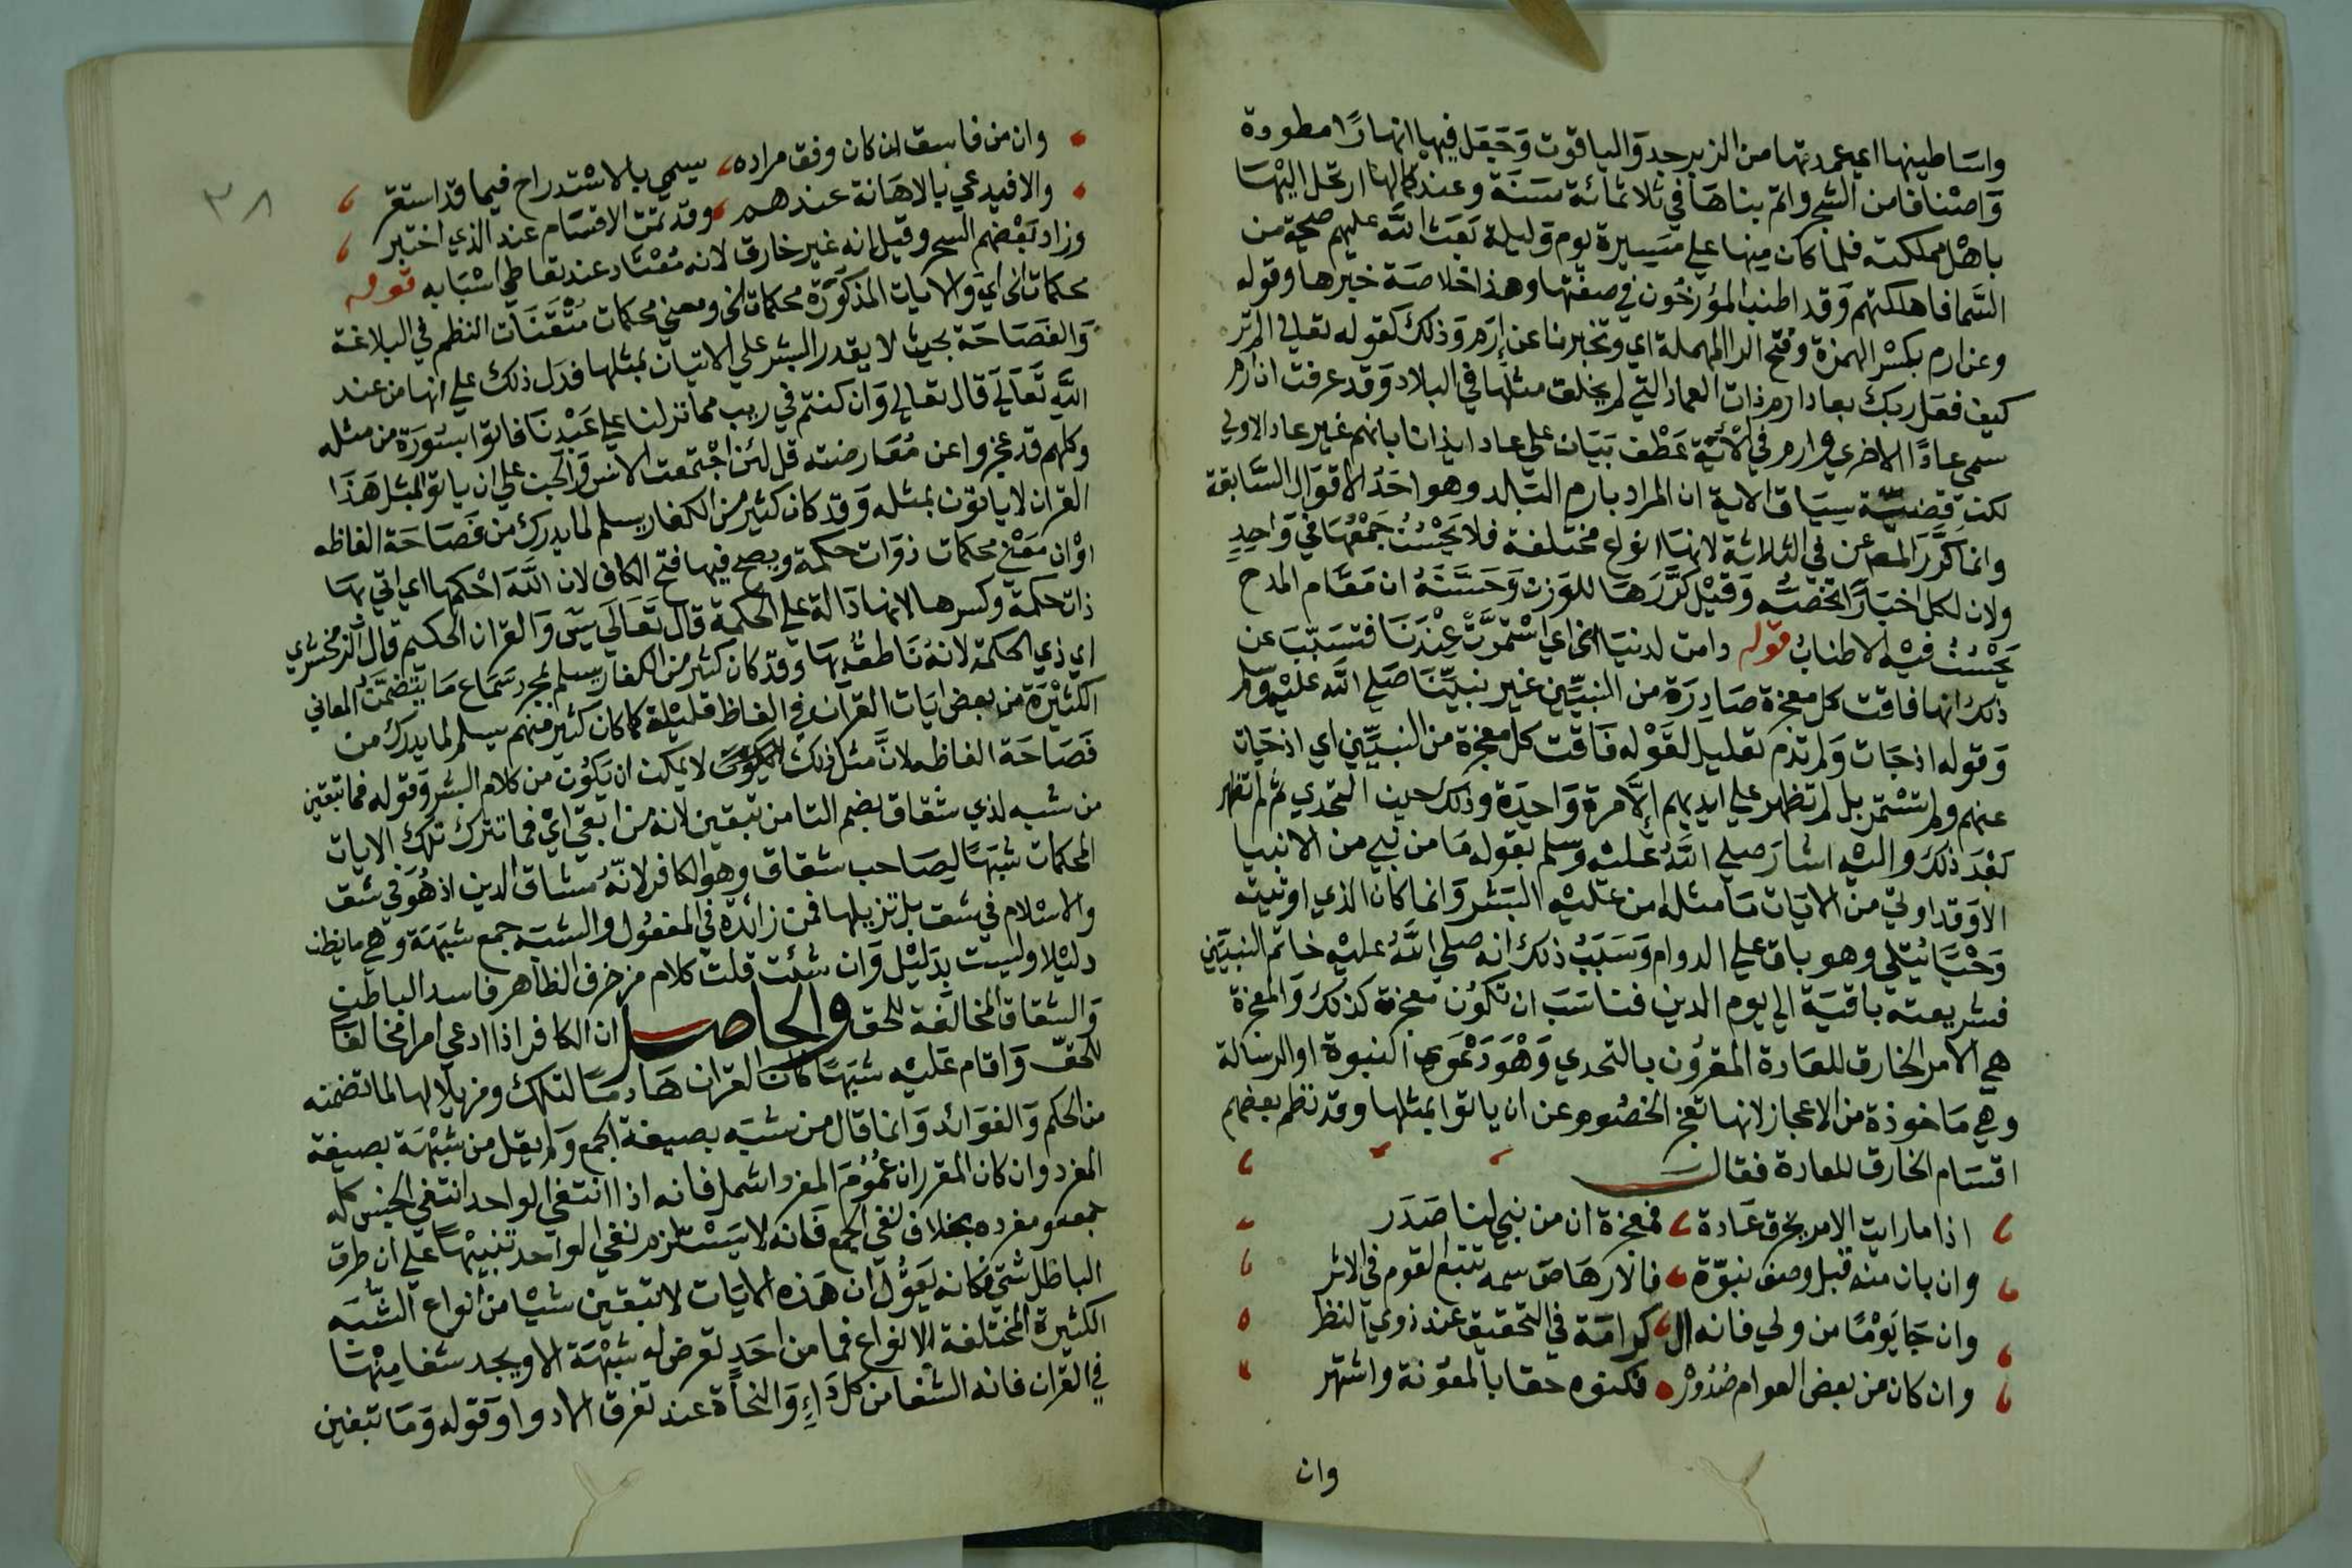 واساطينها اي عمدتها من الزبرجد والياقوت وَجَعَل فيها انهارًا مطرودة
وَاصْنافا من الشجر واتم بناهَا في ثلاثمائة سَنَة وعند كمالها ارتحل اليْهَا
باهْل مملكته فلما كان مِنها علي مَسِيرة يوم وَليلة بَعَث اللَّه عليهم صيحة من
السَّما فاهلكتهم وَقد اطنب المؤرخُون في صفَتها وهذا خلاصَة خبرها وقوله
وعن ارم بكسْر الهمزة وفتح الرا المهملة اي وتخبرنا عن إِرَم وَذلك كقوله تعالي الم تر
كيف فعَل ربك بعاد ارم ذات العماد التي لم يخلق مثلُها في البلاد وَقد عرفت ان ارم
سمي عادًا الاخري وارم في الآيَة عَطْف بَيَان علي عاد ايذانا بانهم غير عاد الاولي
لكن قضيّة سِيَاق الاية ان المراد بارم البَلد وهو احَدُ الاقوَال السَّابقة
وانما كَرَّرَ المصَ عن في الثلاثة لانهَا انواع مختلفة فلا يَحْسُنُ جَمْعُهَا في وَاحِدٍ
ولان لكل اخبَارًا تخصُّه وَقيْل كَرَّرَهَا للوَزن وَحَسَّنَهُ ان مَقَام المدح
يَحْسُنُ فيْه الاطنابُ قوله دامت لدينَا الخ اي اسْتمرَّتْ عِنْدَنَا فتسَبّبَ عن
ذلك انها فاقت كل معجزة صَادِرَة من النبيِّين غير نبيِّنَا صَلي اللَّه عليْه وسلم
وَقوله اذ جَات وَلم تدُم تعليل لقَوْله فَاقت كل معجزة من النبيِّين اي اذ جَات
عنهم ولم تسْتمر بل لم تظهر علي ايديهم إلَّا مرة وَاحِدَة وذلك حين التحدي ثم لم تظهر
بَعْدَ ذلك والَيْه اشارَ صَلي اللَّهُ عَليْه وَسلم بقوله مَا من نبي من الانبيا
الا وَقد اوتيَ من الايَات مَا مثله امن عَليْه البَشر وَانما كان الذي اوتيته
وَحْيًا يُتلي وهو باق علي الدوام وَسَبَبُ ذلك انه صلي اللَّهُ عليْه خاتم النبيّين
فشريعته باقيَة الي يوم الدين فناسَبَ ان تكوُن معجزته كذلك وَالمعجزة
هي الامر الخارق للعَادة المقرُون بالتحدي وَهْوَ دَعْوَى النبوة او الرسَالة
وهي مَاخوذة من الاعجاز لانها تعجز الخصُوم عن ان ياتوا بمثلها وقد نظم بعضهم
اقسَام الخارق للعادة فقال
اذا ما رايت الامر يخرق عَادة فمعجزة ان من نبي لنا صَدَر
وان بان منه قبل وصف نبوّة فالارهاصَ سمه تتبع القوم في الاثر
وان جَا يَوْمًا من ولي فانه ال كرامَة في التحقيق عند ذوي النظر
وان كان من بعض العوام صُدُورُه فكنوه حقا بالمعوُنة واشتهر
وان
٣٨
وان من فاسق ان كان وفق مراده يسمي بالاسْتدراج فيما قد استقر
والا فيدعي بالاهَانة عندهم وقد تمت الاقسَام عند الذي اختبر
وزاد بَعْضهم السحر وقيل انه غير خارق لانه مُعْتَاد عند تعاطي اسْبَابه قوله
محكمات الخ اي وَالايات المذكوَرة محكمات الخ ومعني محكمات مُتْقَنَات النظم في البلاغة
وَالفَصَاحَة بحيث لا يقدر البشر علي الاتيان بمثلها فدَل ذلك علي انها من عند
اللَّه تَعَالي قال تعالي وَان كنتم في ريب مما نزلنا علي عَبْدنَا فاتوا بسُورَة من مثله
وكلهم قد عجزوا عن مُعَارضته قل لئن اجْتمعت الانس وَالجن علي ان ياتوا بمثل هَذَا
القران لا ياتون بمثله وَقد كان كثير من الكفار يسلم لما يدرك من فَصَاحَة الفاظه
اوْ ان مَعْني محكمات ذوَات حكمة ويصح فيها فتح الكاف لان اللَّهَ احْكمها اي اتي بهَا
ذات حكمة وكسرها لانها دَالة علي الحكمة قال تَعَالي يسَ وَالقران الحكيم قال الزمخشري
اي ذي الحكمة لانهُ نَاطقُ بهَا وَقد كان كثير من الكفار يسلم بمجرد سَمَاع مَا يتضمَّنُ المعاني
الكثيْرَة من بعض ايَات القرآن في الفاظ قليْلة كما كان كثير منهم يسلم لما يدرك من
فَصَاحَة الفاظه لانَّ مثل ذلك لا يمكن ان يَكوُن من كلام البشر وَقوله فما تبقين
من شبه لذي شقاق بضم التا من تبقين لانه من ابقي ايْ فما تترك تلك الايات
المحكمات شبَهًا لِصَاحب شقاق وهو الكافر لانّهُ مشاق الدين اذ هُوَ في شق
والاسْلام في شق بل تزيلها فمن زائدة في المفعُول والشبَه جمع شبْهَة وَهي ما يظن
دليْلا وليْست بِدَليْل وَان شئت قلت كلام مزخرف الظاهر فاسد الباطن
وَالشقاق المخالفَة للحق والحاصل ان الكافر اذا ادعي امرا مخالفا
للحَقّ وَاقام عَليْه شبَهًا كان القران هَادمًا لتلك ومزيلا لها لما تضمنه
من الحكم وَالفوَائد وَانما قال من شبَه بصيغة الجمع وَلم يقل من شبْهَة بصيغة
المفرد وان كان المقرر ان عمُوُمَ المفرد اشمل فانه اذا انتفي الواحد انتفي الجنس كله
جمعه ومفرده بخلاف نفي الجمع فَانه لا يَسْتلزم نفي الواحد تنبيْهًا علي ان طرق
الباطل شتي فكانه يَقوُّل ان هَذه الايَات لا تبقين شيْا من انواع الشُّبَه
الكثيرة المختلفة الانواع فما من احَدٍ تعرض له شبْهَة الا ويجد شفا مِنْهَا
في القران فانه الشفا من كل دَاءٍ وَالنجاة عند تفرق الادوا وَقوله وَمَا تبغين